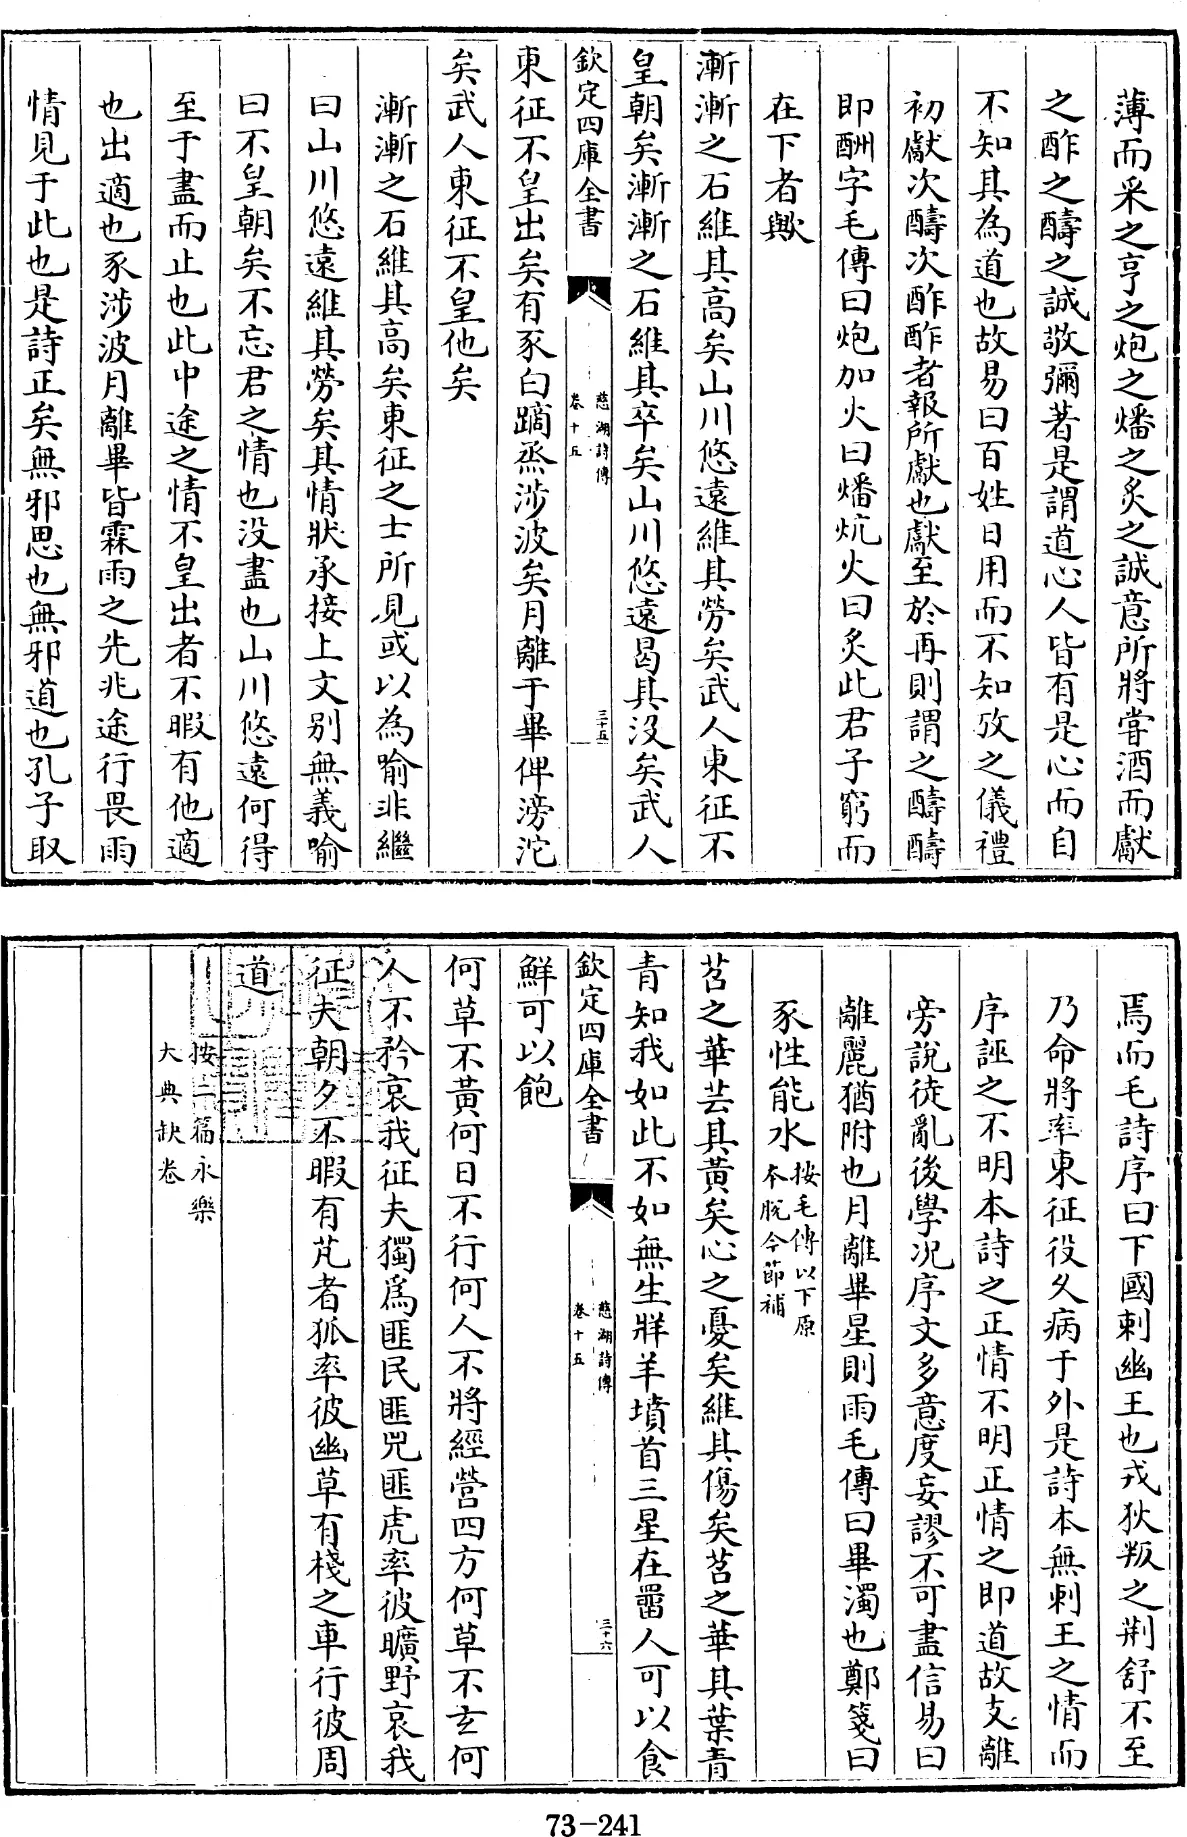 薄而采之亨之炮之燔之炙之誠意所將嘗酒而獻
之酢之醻之誠敬彌著是謂道心人皆有是心而自
不知其為道也故易曰百姓日用而不知攷之儀禮
初獻次醻次酢酢者報所獻也獻至於再則謂之醻醻
即酬字毛傳曰炮加火曰燔炕火曰炙此君子窮而
在下者歟
漸漸之石維其高矣山川悠遠維其勞矣武人東征不
皇朝矣漸漸之石維其卒矣山川悠遠曷其沒矣武人
欽定四庫全書
慈湖詩傳
卷十五
三十五
東征不皇出矣有豕白蹢烝涉波矣月離于畢俾滂沱
矣武人東征不皇他矣
漸漸之石維其高矣東征之士所見或以為喻非繼
曰山川悠遠維其勞矣其情狀承接上文别無義喻
曰不皇朝矣不忘君之情也没盡也山川悠遠何得
至于盡而止也此中途之情不皇出者不暇有他適
也出適也豕涉波月離畢皆霖雨之先兆途行畏雨
情見于此也是詩正矣無邪思也無邪道也孔子取
焉而毛詩序曰下國刺幽王也戎狄叛之荆舒不至
乃命將率東征役久病于外是詩本無刺王之情而
序誣之不明本詩之正情不明正情之即道故支離
旁說徒亂後學况序文多意度妄謬不可盡信易曰
離麗猶附也月離畢星則雨毛傳曰畢濁也鄭箋曰
豕性能水按毛傳以下原
本脱今節補
苕之華芸其黃矣心之憂矣維其傷矣苕之華其葉青
青知我如此不如無生牂羊墳首三星在罶人可以食
欽定四庫全書
慈湖詩傳
卷十五
三十六
鮮可以飽
何草不黃何日不行何人不將經營四方何草不玄何
人不矜哀我征夫獨爲匪民匪兕匪虎率彼曠野哀我
征夫朝夕不暇有芃者狐率彼幽草有棧之車行彼周
道
按二篇永樂
大典缺卷
73-241